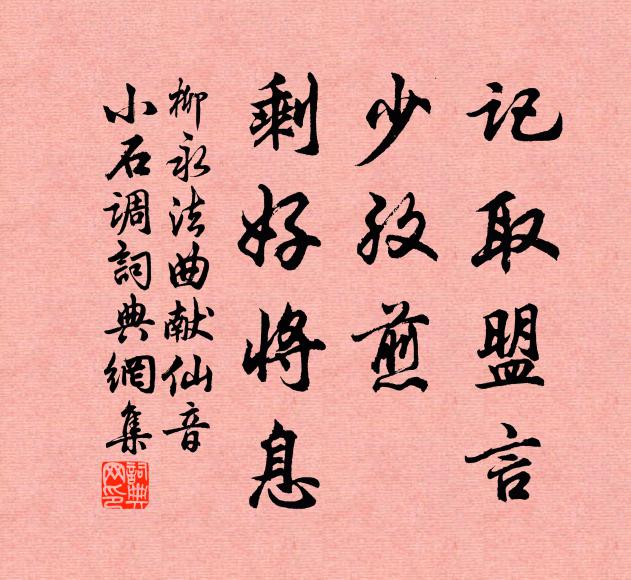 記取盟言
少孜煎
剩好將息
柳永法曲献仙音
小石調詞典網集
詞典
网印